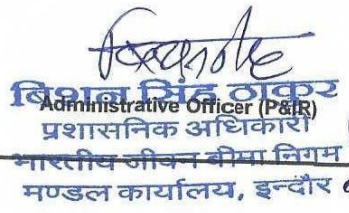 बिशन सिंह ठाकुर
Administrative Officer (P&IR)
प्रशासनिक अधिकारी
भारतीय जीवन बीमा निगम
मण्डल कार्यालय, इन्दौर